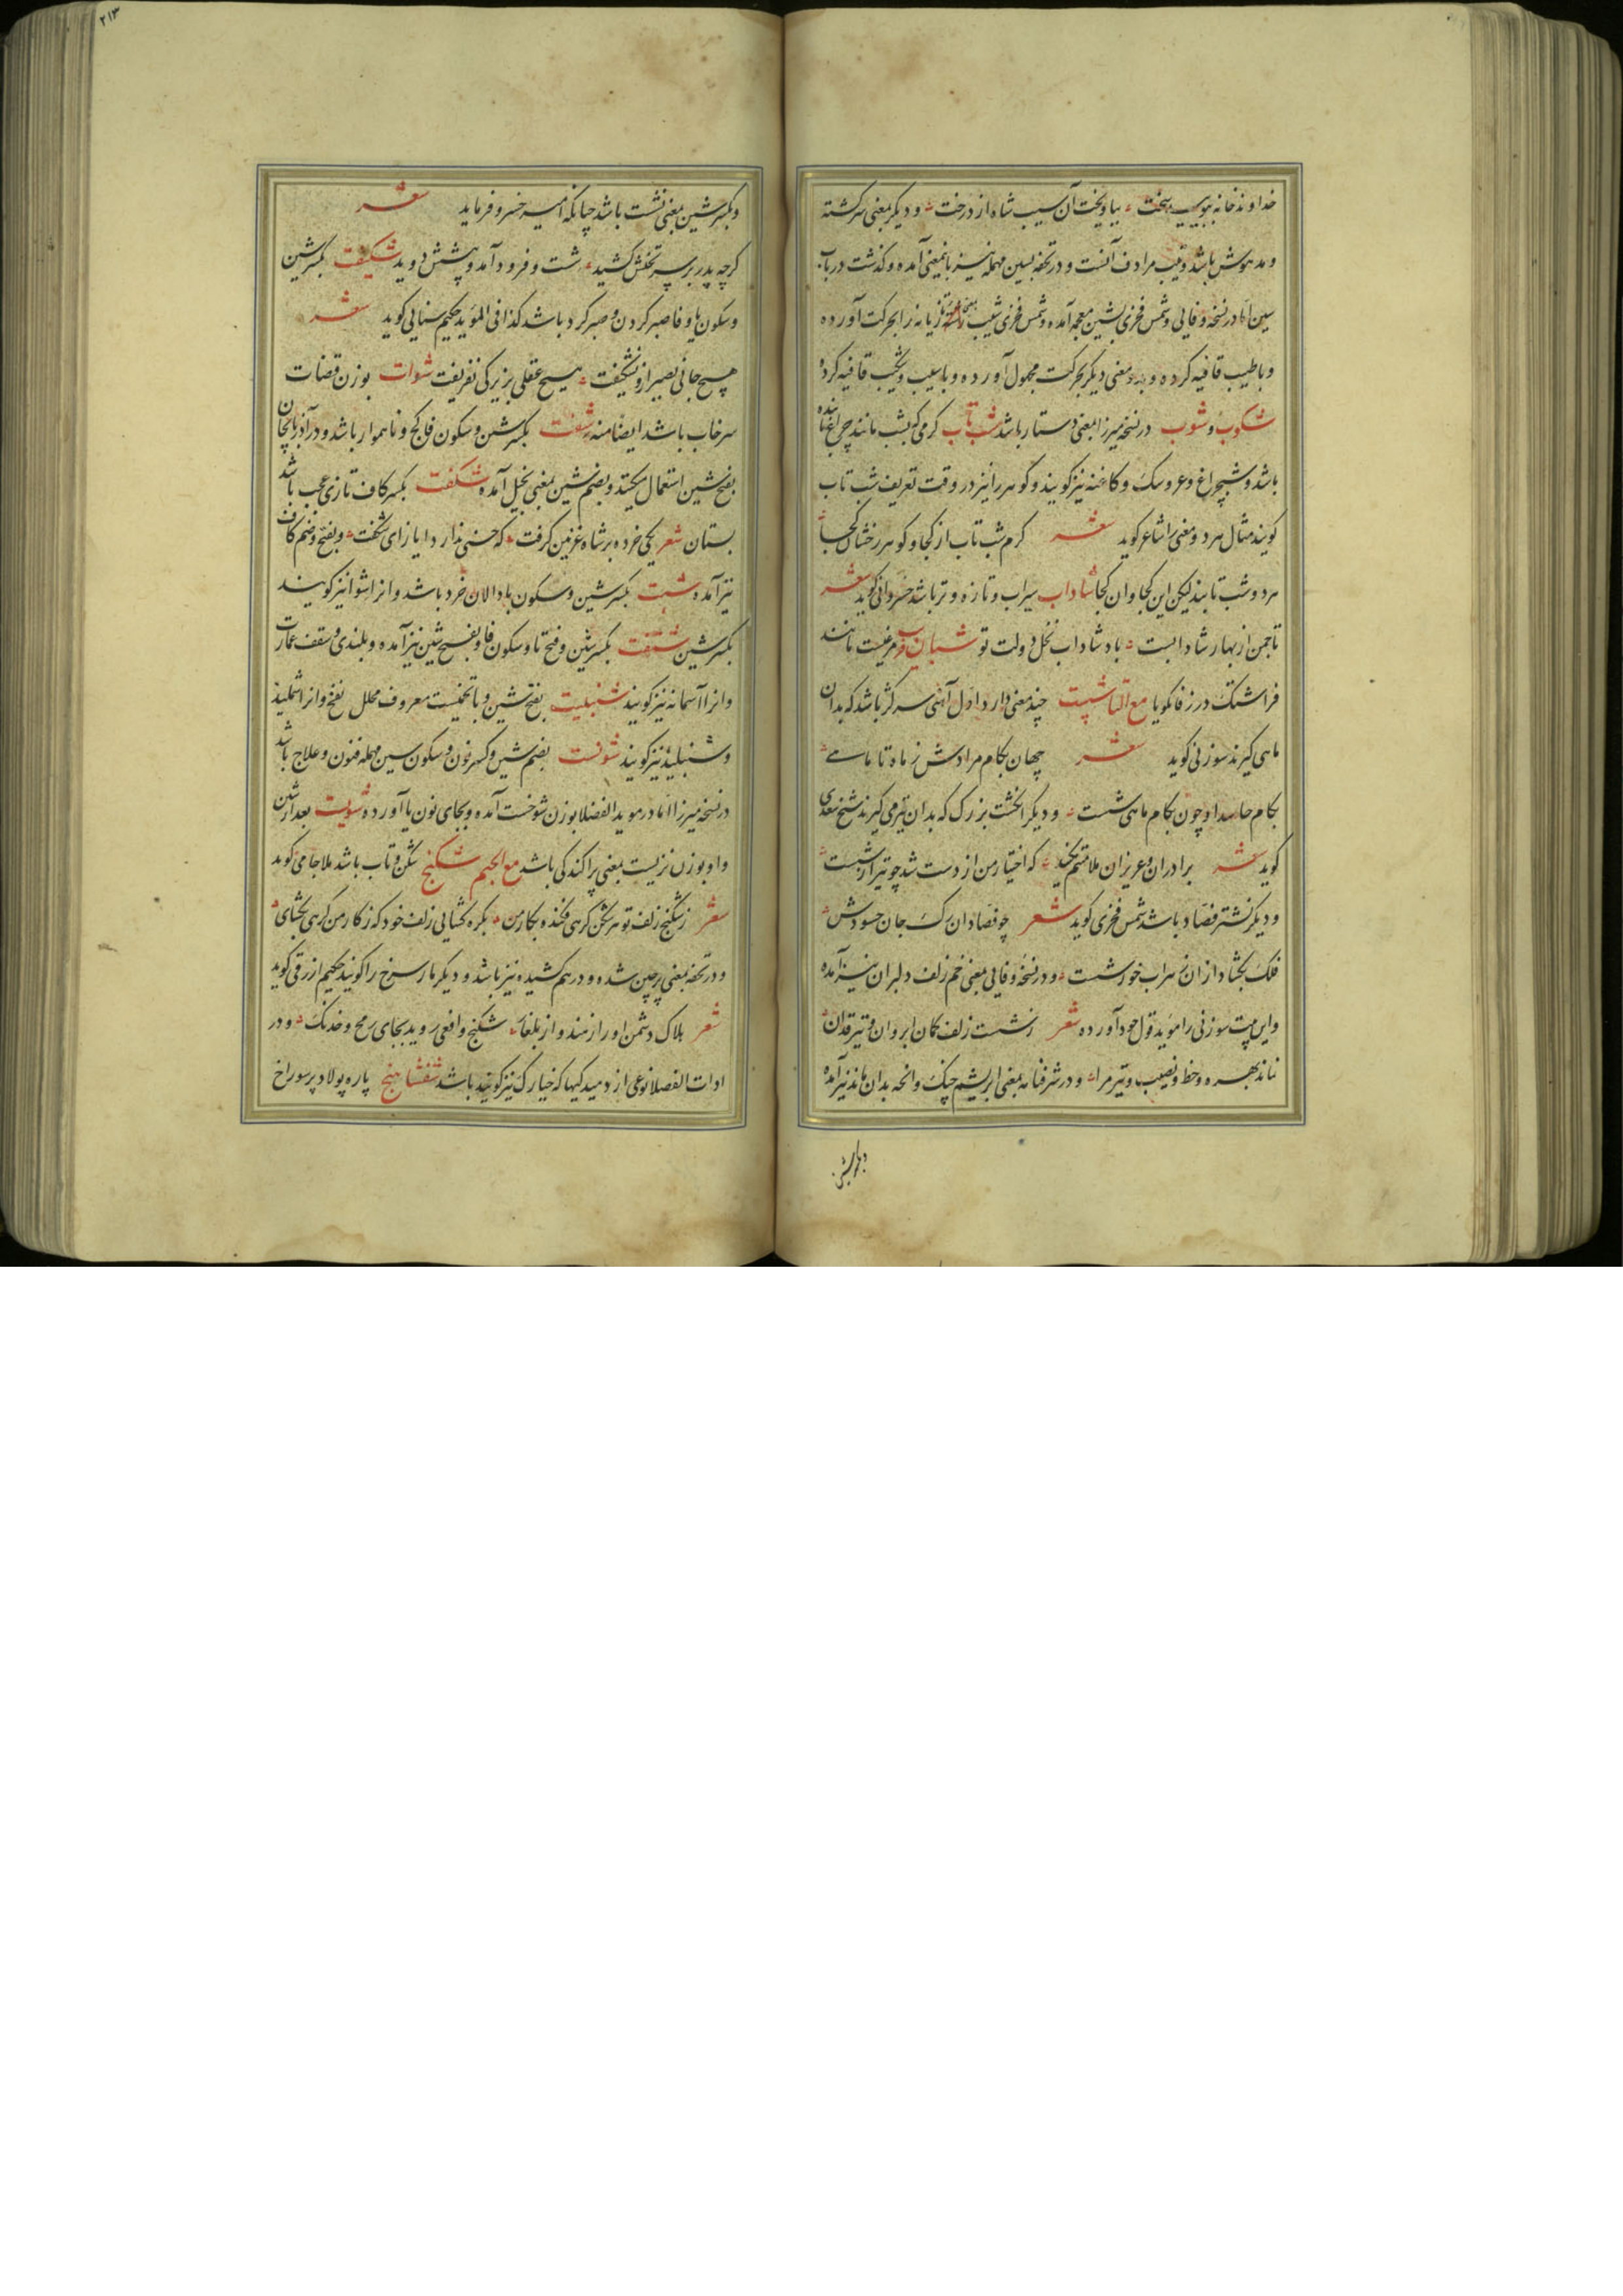 خداوند خانه ببویید سخت بیاویخت آن سیب شاه از درخت و دیکر بمعنی سرکشته
و مدهوش باشد و تیب مرادف آنست و در تحفه بسین مهمله نیز باینمعنی آمده و کذشت در باب
سین اما در نسخه وفایی و شمس فخری بشین معجمه آمده و شمس فخری شیب تازیانه را بحرکت آورده
و باطیب قافیه کرده و بمعنی دیکر بحرکت مجهول آورده و باسیب و نخیب قافیه کرده
شکوب و شوب در نسخه میرزا بمعنی دستار باشد شب تاب کرمی که بشب مانند چراغ تابنده
باشد و شبچراغ و عروسک و کاغنه نیز کویند و کوهر را نیز در وقت تعریف شب تاب
کویند مثال هر دو معنی را شاعر کوید شعر کرم شب تاب از کجا و کوهر رخشان کجا
هر دو شب تابند لیکن این کجا و ان کجا شاداب سیراب و تازه و تر باشد خسروانی کوید شعر
تا چمن از بهار شادابست باد شاداب نخل دولت تو شبان فریب مرغیست مانند
فراشتک در زفانکویا مع التا شست چند معنی دارد اول آهنی سر کژ باشد که بدان
ماهی کیرند سوزنی کوید شعر جهان بکام مرادش ز ماه تا ماهی
بکام حاسد او چون بکام ماهی شست و دیکر انکشت بزرک که بدان تیر می کیرند شیخ سعدی
کوید شعر برادران و عزیزان ملامتم مکنید که اختیار من از دست شد چو تیر از شست
و دیکر نشتر فصاد باشد شمس فخری کوید شعر چو فصادان رک جان حسودش
فلک بکشاد ازان زهراب خور شست و در نسخه وفایی بمعنی خم زلف دلبران نیز آمده
و این بیت سوزنی را موید قول خود آورده شعر ز شست زلف کمان ابروان و تیر قدان
نماند بهره و حظ و نصیب و تیر مرا و در شرفنامه بمعنی ابریشم چنک و انچه بدان ماند نیز آمده
و بکسر شین
۲۱۳
و بکسر شین بمعنی نشست باشد چنانکه امیر خسرو فرماید شعر
کرچه پدر بر سر تختش کشید شست و فرود آمد و پیشش دوید شکیفت بکسر شین
و سکون یا و فا صبر کردن و صبر کرد باشد کذا فی المؤید حکیم سنایی کوید شعر
هیچ جانی بصبر ازو نشکیفت هیچ عقلی بزیرکی نفریفت شوات بوزن قضات
سرخاب باشد ایضا منه شفت بکسر شین و سکون فا کج و ناهموار باشد و در آذربایجان
بفتح شین استعمال میکنند و بضم شین بمعنی بخیل آمده شکفت بکسر کاف تازی عجب باشد
بستان شعر یکی خرده بر شاه غزنین کرفت که حسنی ندارد ایاز ای شکفت و بفتح و ضم کاف
نیز آمده شبت بکسر شین و سکون با دالان خرد باشد و انرا شوا نیز کویند
بکسر شین شتفت بکسر شین و فتح تا و سکون فا و بفتح شین نیز آمده و بلندی و سقف عمارت
و انرا آسمانه نیز کویند شنبلیت بفتح شین و با تخمیست معروف محلل نفخ و انرا شملیذ
و شنبلیذ نیز کویند شونست بضم شین و کسر نون و سکون سین مهمله فنون و علاج باشد
در نسخه میرزا اما در موید الفضلا بوزن شوخست آمده و بجای نون یا آورده شویت بعد از شین
واو بوزن نزیست بمعنی پراکندکی باشد مع الجیم شکنج شکن و تاب باشد ملا جامی کوید
شعر ز شکنج زلف تو هر شکن کرهی فکنده بکار من بکره کشایی زلف خود که ز کار من کرهی بکشای
و در تحفه بمعنی پرچین شده و درهم کشیده نیز باشد و دیکر مار سرخ را کویند حکیم ازرقی کوید
شعر هلاک دشمن او را ز هند و از بلغار شکنج و افعی روید بجای رمح و خدنک و در
ادات الفضلا نوعی از دمیدکیها که خیارک نیز کویند باشد شفشاهنج پاره پولاد پر سوراخ